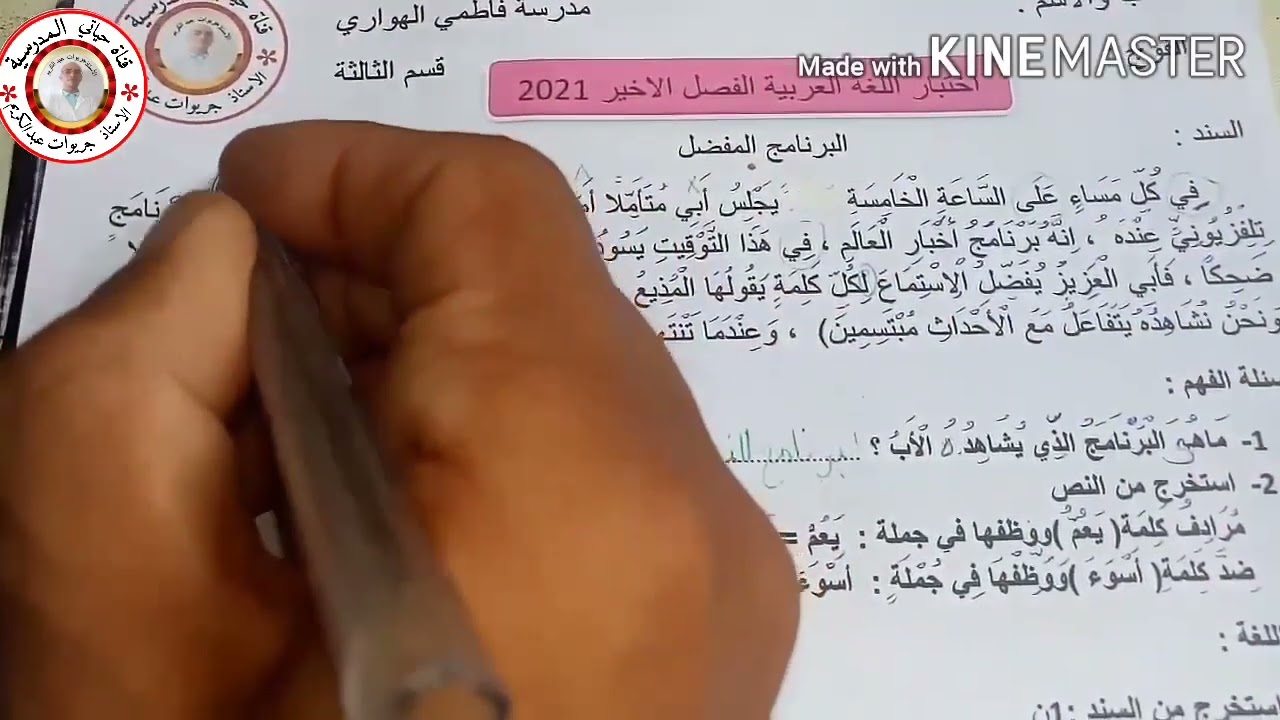 مدرسة فاطمي الهواري
قناة حياتي المدرسية
الاستاذ جريوات عبدالكريم
Made with KINEMASTER
قسم الثالثة
اختبار اللغة العربية الفصل الاخير 2021
السند :
البرنامج المفضل
فِي كُلِّ مَسَاءٍ عَلَى السَّاعَةِ الْخَامِسَةِ يَجْلِسُ أَبِي مُتَأَمِّلًا
تِلِفِزْيُونِيٍّ عِنْدَه ، اِنَّهُ بَرْنَامَجُ أَخْبَارِ الْعَالَمِ ، فِي هَذَا التَّوْقِيتِ
ضَحِكًا ، فَأَبِي الْعَزِيزُ يُفَضِّلُ الْاِسْتِمَاعَ لِكُلِّ كَلِمَةٍ يَقُولُهَا الْمُذِيعُ
وَنَحْنُ نُشَاهِدُهُ يَتَفَاعَلُ مَعَ الْأَحْدَاثِ مُبْتَسِمِينَ) ، وَعِنْدَمَا
الفهم :
1- مَاهُوَ الْبَرْنَامَجُ الذِّي يُشَاهِدُهُ الْأَبُ ؟
2- استخرج من النص
مُرَادِفُ كَلِمَة( يَعُمُّ )ووظفها في جملة : يَعُمُّ =
ضِدَّ كَلِمَةِ( أَسْوَءَ )وَوَظِّفْهَا فِي جُمْلَةٍ : أسْوَءَ
اللغة :
استخرج من السند :1ن